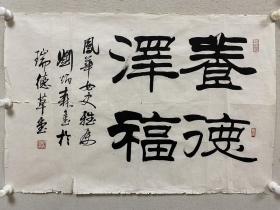 養德
澤福
鳳華女史雅屬
關炳森書於
瑞德草堂